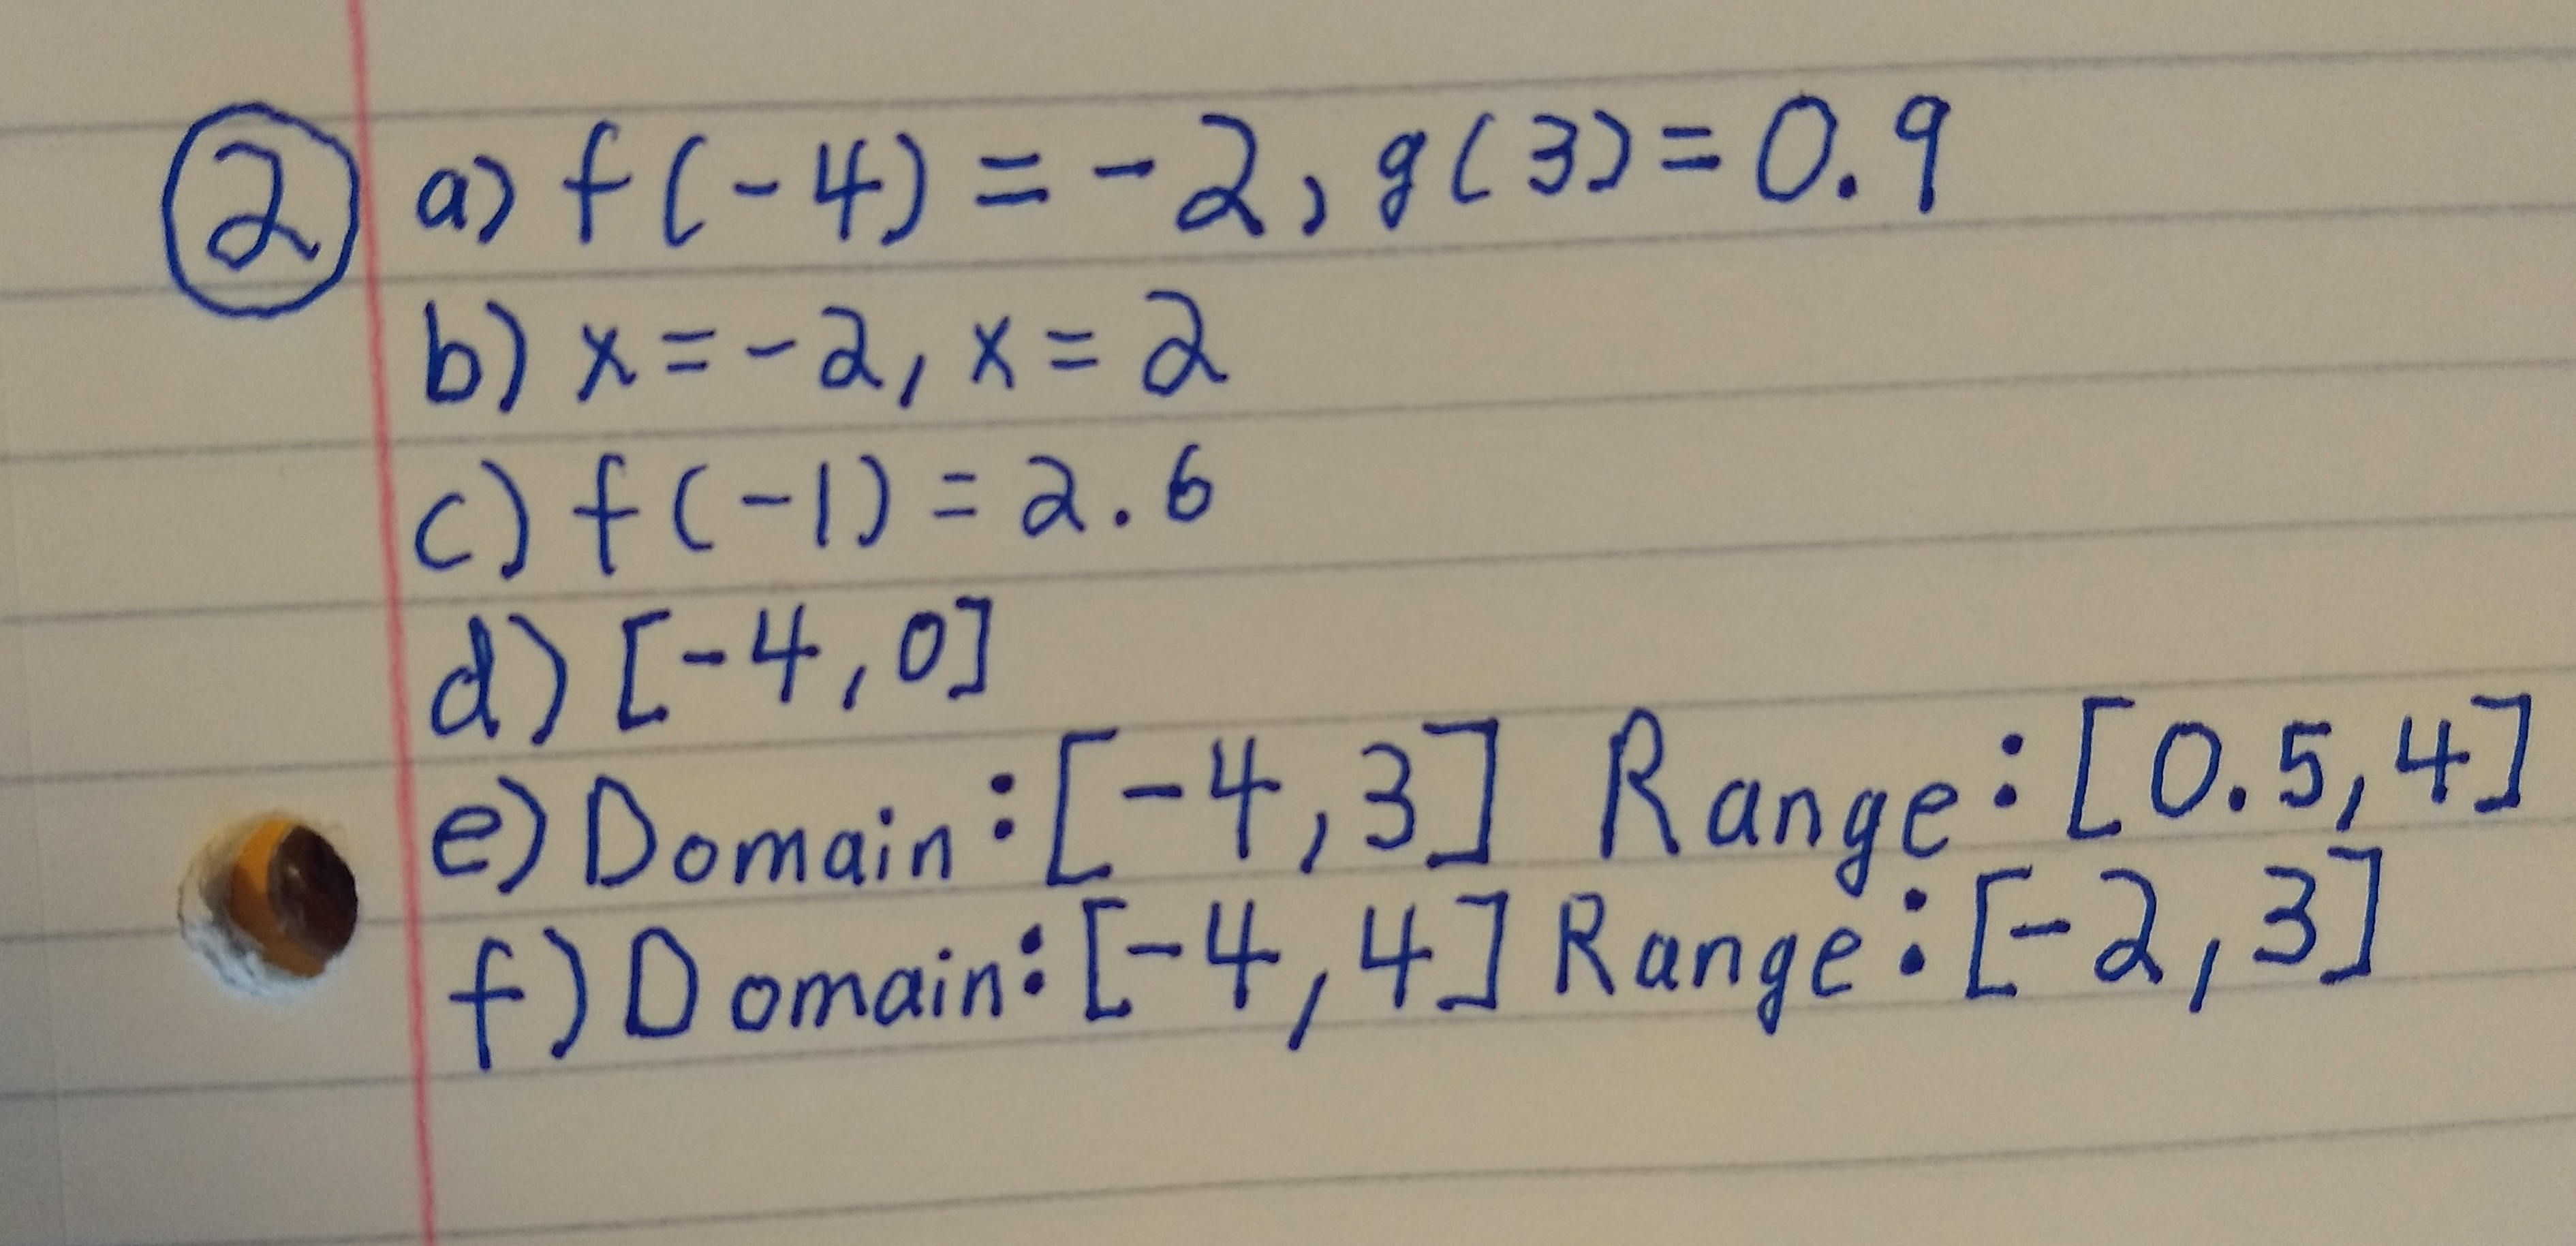 2 a) f(-4) = -2, g(3) = 0.9
b) x = -2, x = 2
c) f(-1) = 2.6
d) [-4, 0]
e) Domain: [-4, 3] Range: [0.5, 4]
f) Domain: [-4, 4] Range: [-2, 3]